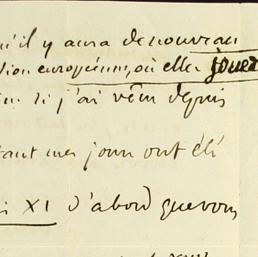 qu'il y aura de nouveau
tion européenne, où elle jouer
si j'ai vécu depuis
tant mes jours ont été
XI d'abord que vous